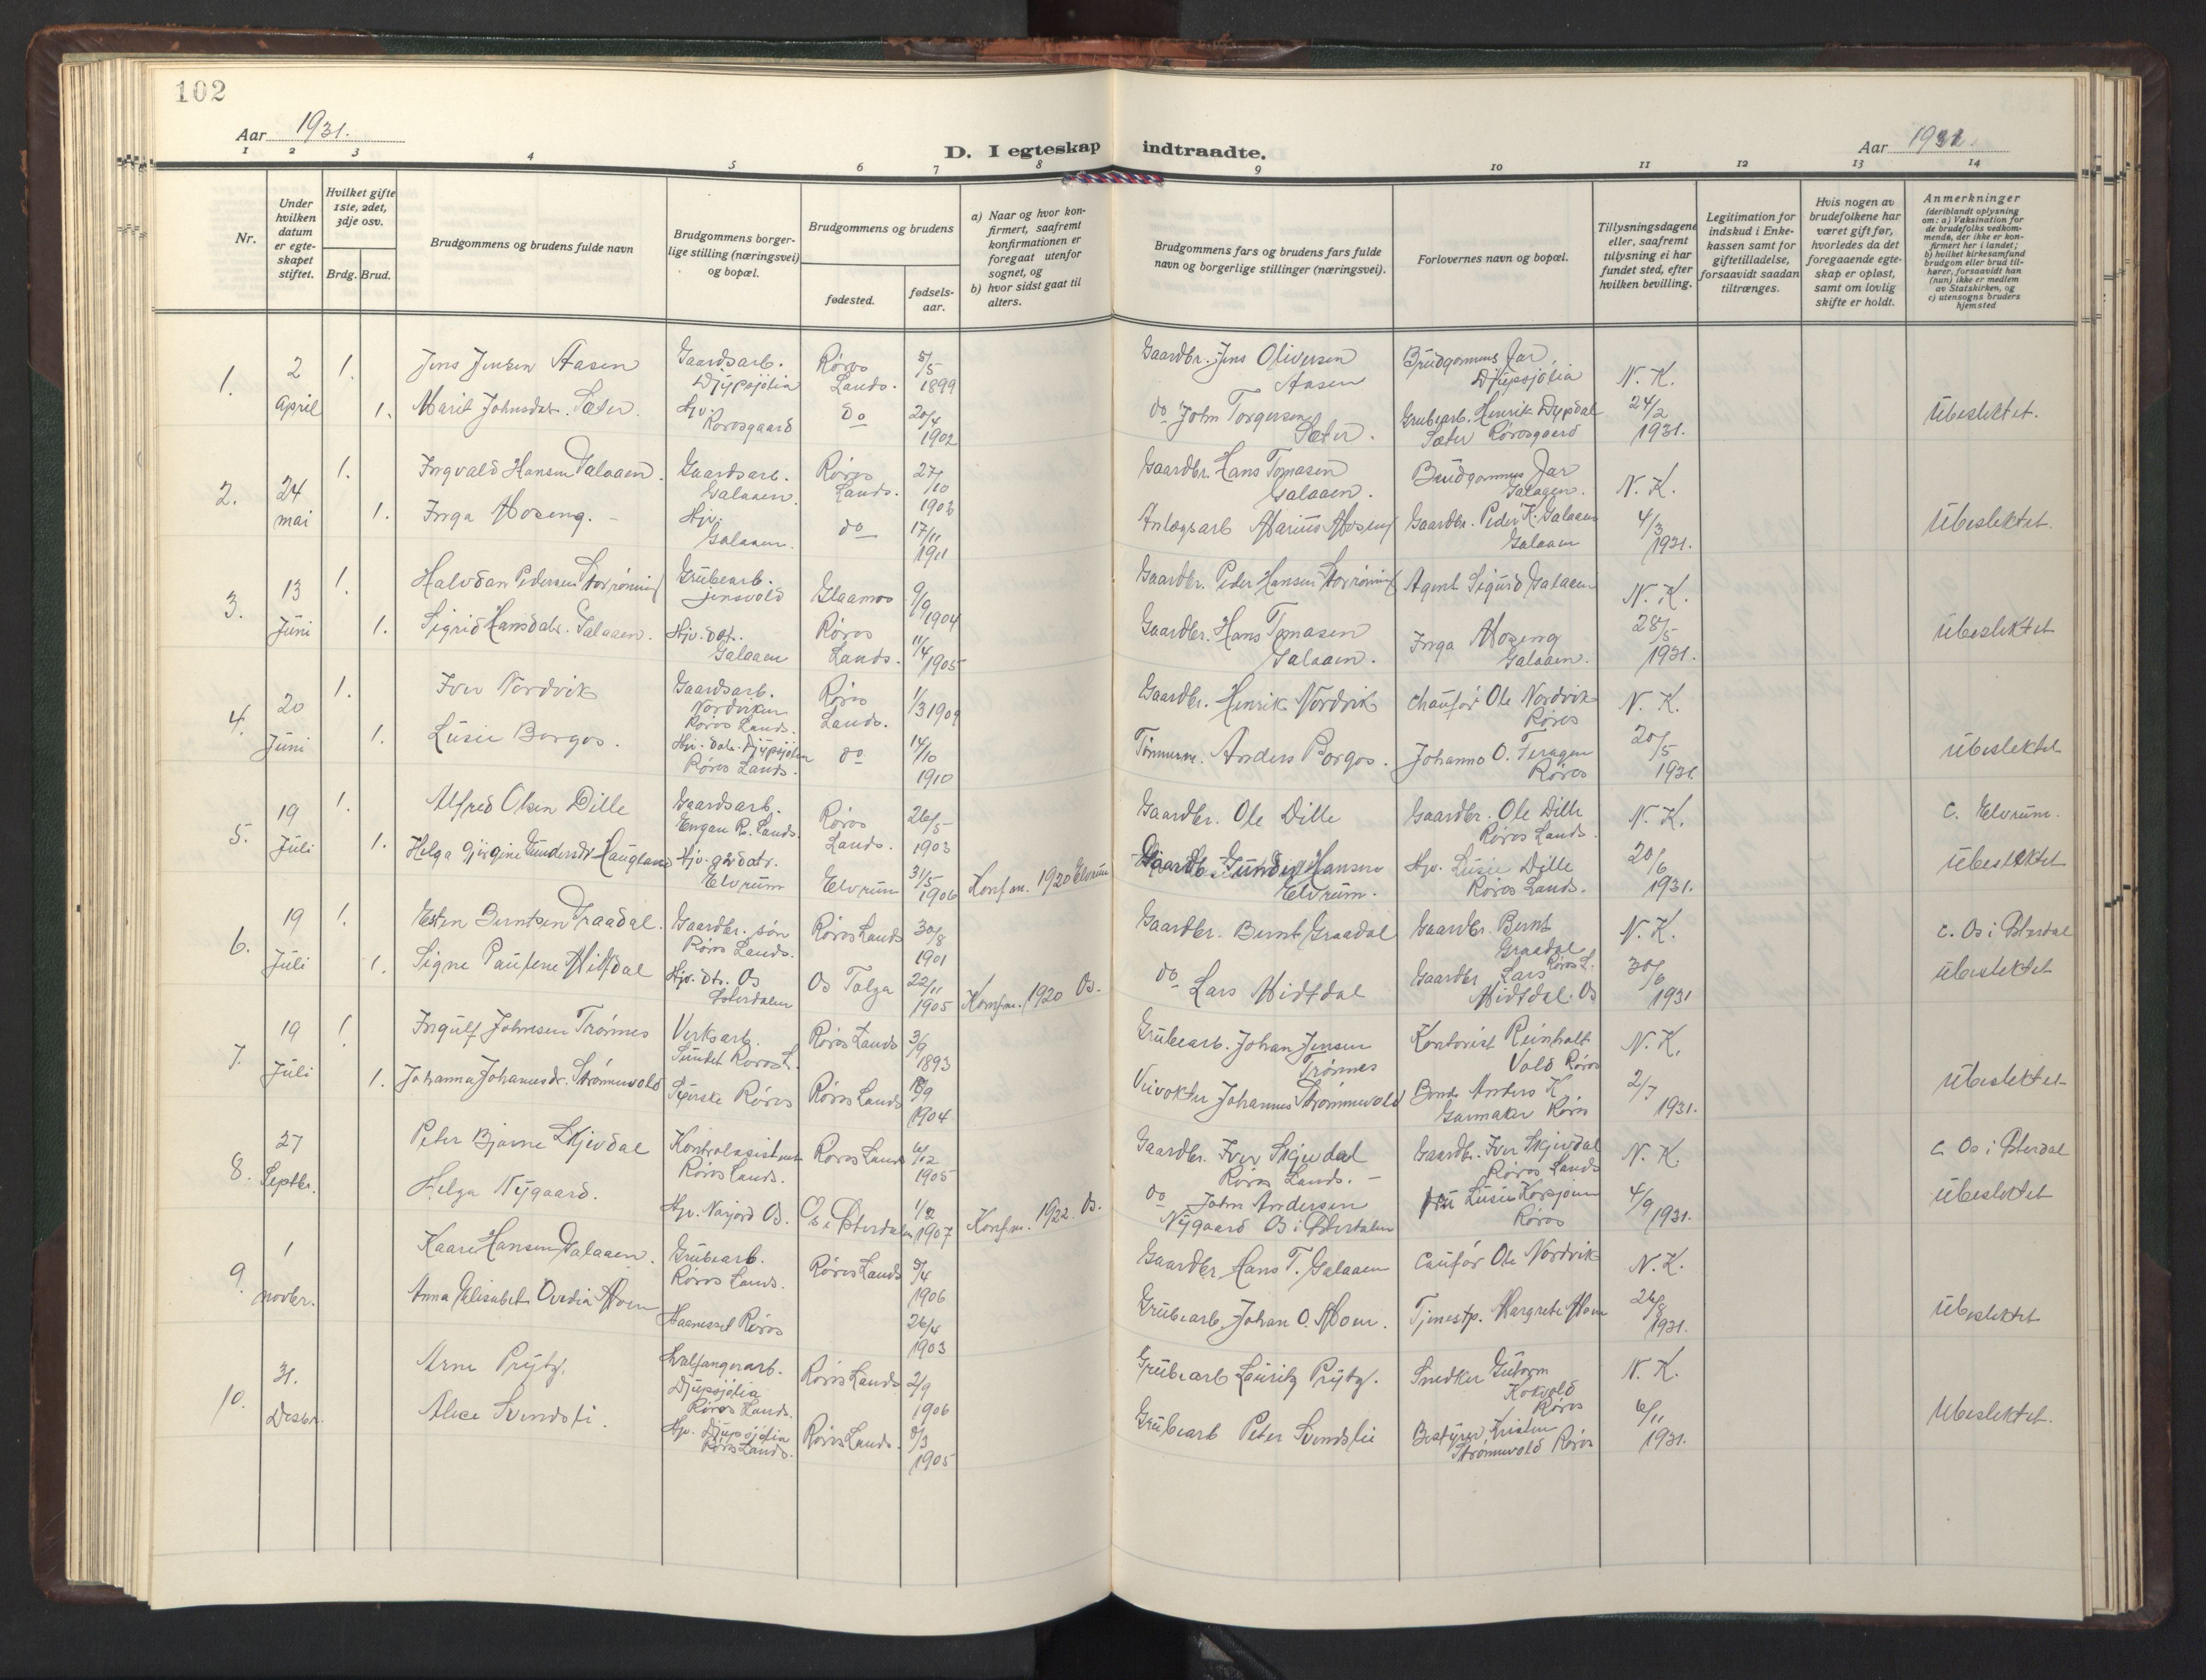 102
Aar 1931.
D. I egteskap indtraadte.
Aar 1931.
1 2 3 4 5 6 7 8 9 10 11 12 13 14
Nr.
Under hvilken datum er egteskapet stiftet.
Hvilket gifte 1ste, 2det, 3dje osv.
Brdg. Brud.
Brudgommens og brudens fulde navn
Brudgommens borgerlige stilling (næringsvei) og bopæl.
Brudgommens og brudens
fødested.
fødselsaar.
a) Naar og hvor konfirmert, saafremt konfirmationen er foregaat utenfor sognet, og
b) hvor sidst gaat til alters.
Brudgommens fars og brudens fars fulde navn og borgerlige stillinger (næringsvei).
Forlovernes navn og bopæl.
Tillysningsdagene eller, saafremt tillysning ei har fundet sted, efter hvilken bevilling.
Legitimation for indskud i Enkekassen samt for giftetilladelse, forsaavidt saadan tiltrænges.
Hvis nogen av brudefolkene har været gift før, hvorledes da det foregaaende egteskap er opløst, samt om lovlig skifte er holdt.
Anmerkninger
(deriblandt oplysning om: a) Vaksination for de brudefolks vedkommende, der ikke er konfirmert her i landet; b) hvilket kirkesamfund brudgom eller brud tilhører, forsaavidt han (hun) ikke er medlem av Statskirken, og c) utensogns bruders hjemsted
1. 2 April 1. Jens Jensen Aasen Gaardsarb. Djupsjølia Røros Lands. 5/5 1899 Gaardbr. Jens Oliversen Aasen Brudgommens Far, Djupsjølia N. K.
1. Marit Johnsdatr. Sæter. Hjv. Rørosgaard do 20/4 1902 do John Torgersen Sæter. Grubearb. Henrik Dypdal Sæter Rørosgaard 24/2 1931. Ubeslektet.
2. 24 mai 1. Ingvald Hansen Galaaen. Gaardsarb. Galaaen. Røros Lands. 27/10 1903 Gaardbr. Hans Tomasen Galaaen. Brudgommens Far Galaaen. N. K.
1. Inga Moseng. Hjv. Galaaen. do 17/11 1911 Anlægsarb Marius Moseng Gaardbr. Peder K. Galaaen Galaaen 4/3 1931. Ubeslektet.
3. 13 Juni 1. Halvdan Pedersen Storrøning Grubearb. Jensvold Glaamos 9/9 1904 Gaardbr. Peder Hansen Storrøning Agent Sigurd Galaaen N. K.
1. Sigrid Hansdatr. Galaaen. Hjv. dat. Galaaen Røros Lands. 11/4 1905 Gaardbr. Hans Tomasen Galaaen. Inga Moseng Galaaen. 28/5 1931. Ubeslektet
4. 20 Juni 1. Iver Nordvik Gaardsarb. Nordviken Røros Lands. Røros Lands. 1/3 1909 Gaardbr. Henrik Nordvik Chaufør Ole Nordvik Røros N. K.
1. Lusie Borgos. Hjv. datr. Djupsjølia Røros Lands. do 14/10 1910 Tømmerm. Anders Borgos. Johanno O. Feragen Røros 20/5 1931 Ubeslektet
5. 19 Juli 1. Alfred Olsen Dille Gaardsarb. Engan R. Lands. Røros Lands. 26/5 1903 Gaardbr. Ole Dille Gaardbr. Ole Dille Røros Lands. N. K. c. Elvrum.
1. Helga Gjørgine Gundersdr. Haugland Hjv. grd datr. Elvrum Elvrum 31/5 1906 Konf m. 1920 Elvrum Gaardb. Gunder Hansen Elvrum. Hjv. Lusie Dille Røros Lands. 20/6 1931. Ubeslektet
6. 19 Juli 1. Esten Berntsen Graadal. Gaardbr. søn Røros Lands. Røros Lands 30/8 1901 Gaardbr. Bernt Graadal Gaardbr. Bernt Graadal Røros L. N. K. c. Os i Østerdal
1. Signe Pauline Midtdal Hjv. dtr. Os Østerdalen Os Tolga 22/11 1905 Konf m. 1920 Os. do Lars Midtdal Gaardbr Lars Midtdal. Os 30/6 1931 Ubeslektet
7. 19 Juli 1. Ingulf Johnsen Trønnes Verksarb. Sundet Røros L. Røros Lands 3/9 1893 Grubearb. Johan Jensen Trønnes Kontorist Reinholt Vold Røros N. K.
1. Johanna Johannesdr. Strømmevold Syerske Røros Røros Lands 18/9 1904 Veivokter Johannes Strømmevold Bonde Anders K. Garmaker Røros 2/7 1931. Ubeslektet
8. 27 Septbr. Peter Bjarne Skjevdal Kontrolasistent Røros Lands. Røros Lands 4/12 1905 Gaardbr. Iver Skjevdal Røros Lands. Gaardbr. Iver Skjevdal Røros Lands N. K. c. Os i Østerdal
Helga Nygaard. Hjv. Narjord Os. Os i Østerdalen 1/2 1907 Konf m. 1922. Os. do John Andersen Nygaard Os i Østerdalen Fru Lusie Korsjøen Røros 4/9 1931. Ubeslektet
9. 1 novbr. Kaare Hansen Galaaen. Grubearb. Røros Lands. Røros Lands 5/4 1906 Gaardbr. Hans T. Galaaen Caufør Ole Nordvik N. K.
Anna Elisabet Ovedia Moen Røros 26/4 1903 Grubearb. Johan O. Moen. Tjenestp. Margrete Moen 26/8 1931. Ubeslektet
10. 31. Desbr. Arne Prytz. Hvalfangerarb. Djupsjølia Røros Lands. Røros Lands 2/9 1906 Grubearb Lauritz Prytz. Snedker Gutorm Kokvold Røros N. K.
Alice Svendsli. Hjv. Djupsjølia Røros Lands. Røros Lands. 8/3 1905 Grubearb Peter Svendsli Bestyrer Kristen Strømmevold Røros 6/11 1931. Ubeslektet.